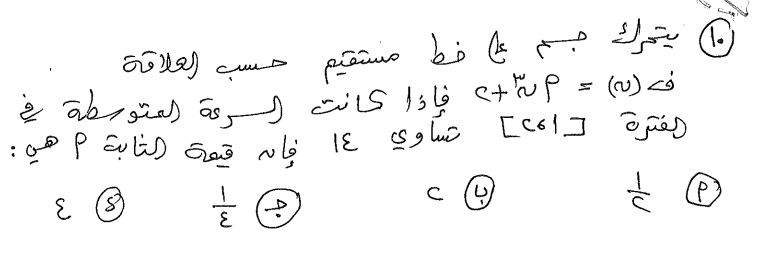 ١٠) يتحرك جسم على خط مستقيم حسب العلاقة
ف(ن) = م ن٣ + ٢ فإذا كانت السرعة المتوسطة في
الفترة [٢،١] تساوي ١٤ فإن قيمة الثابت م هي :
أ) ١/٢ ب) ٢ ج) ١/٤ د) ٤